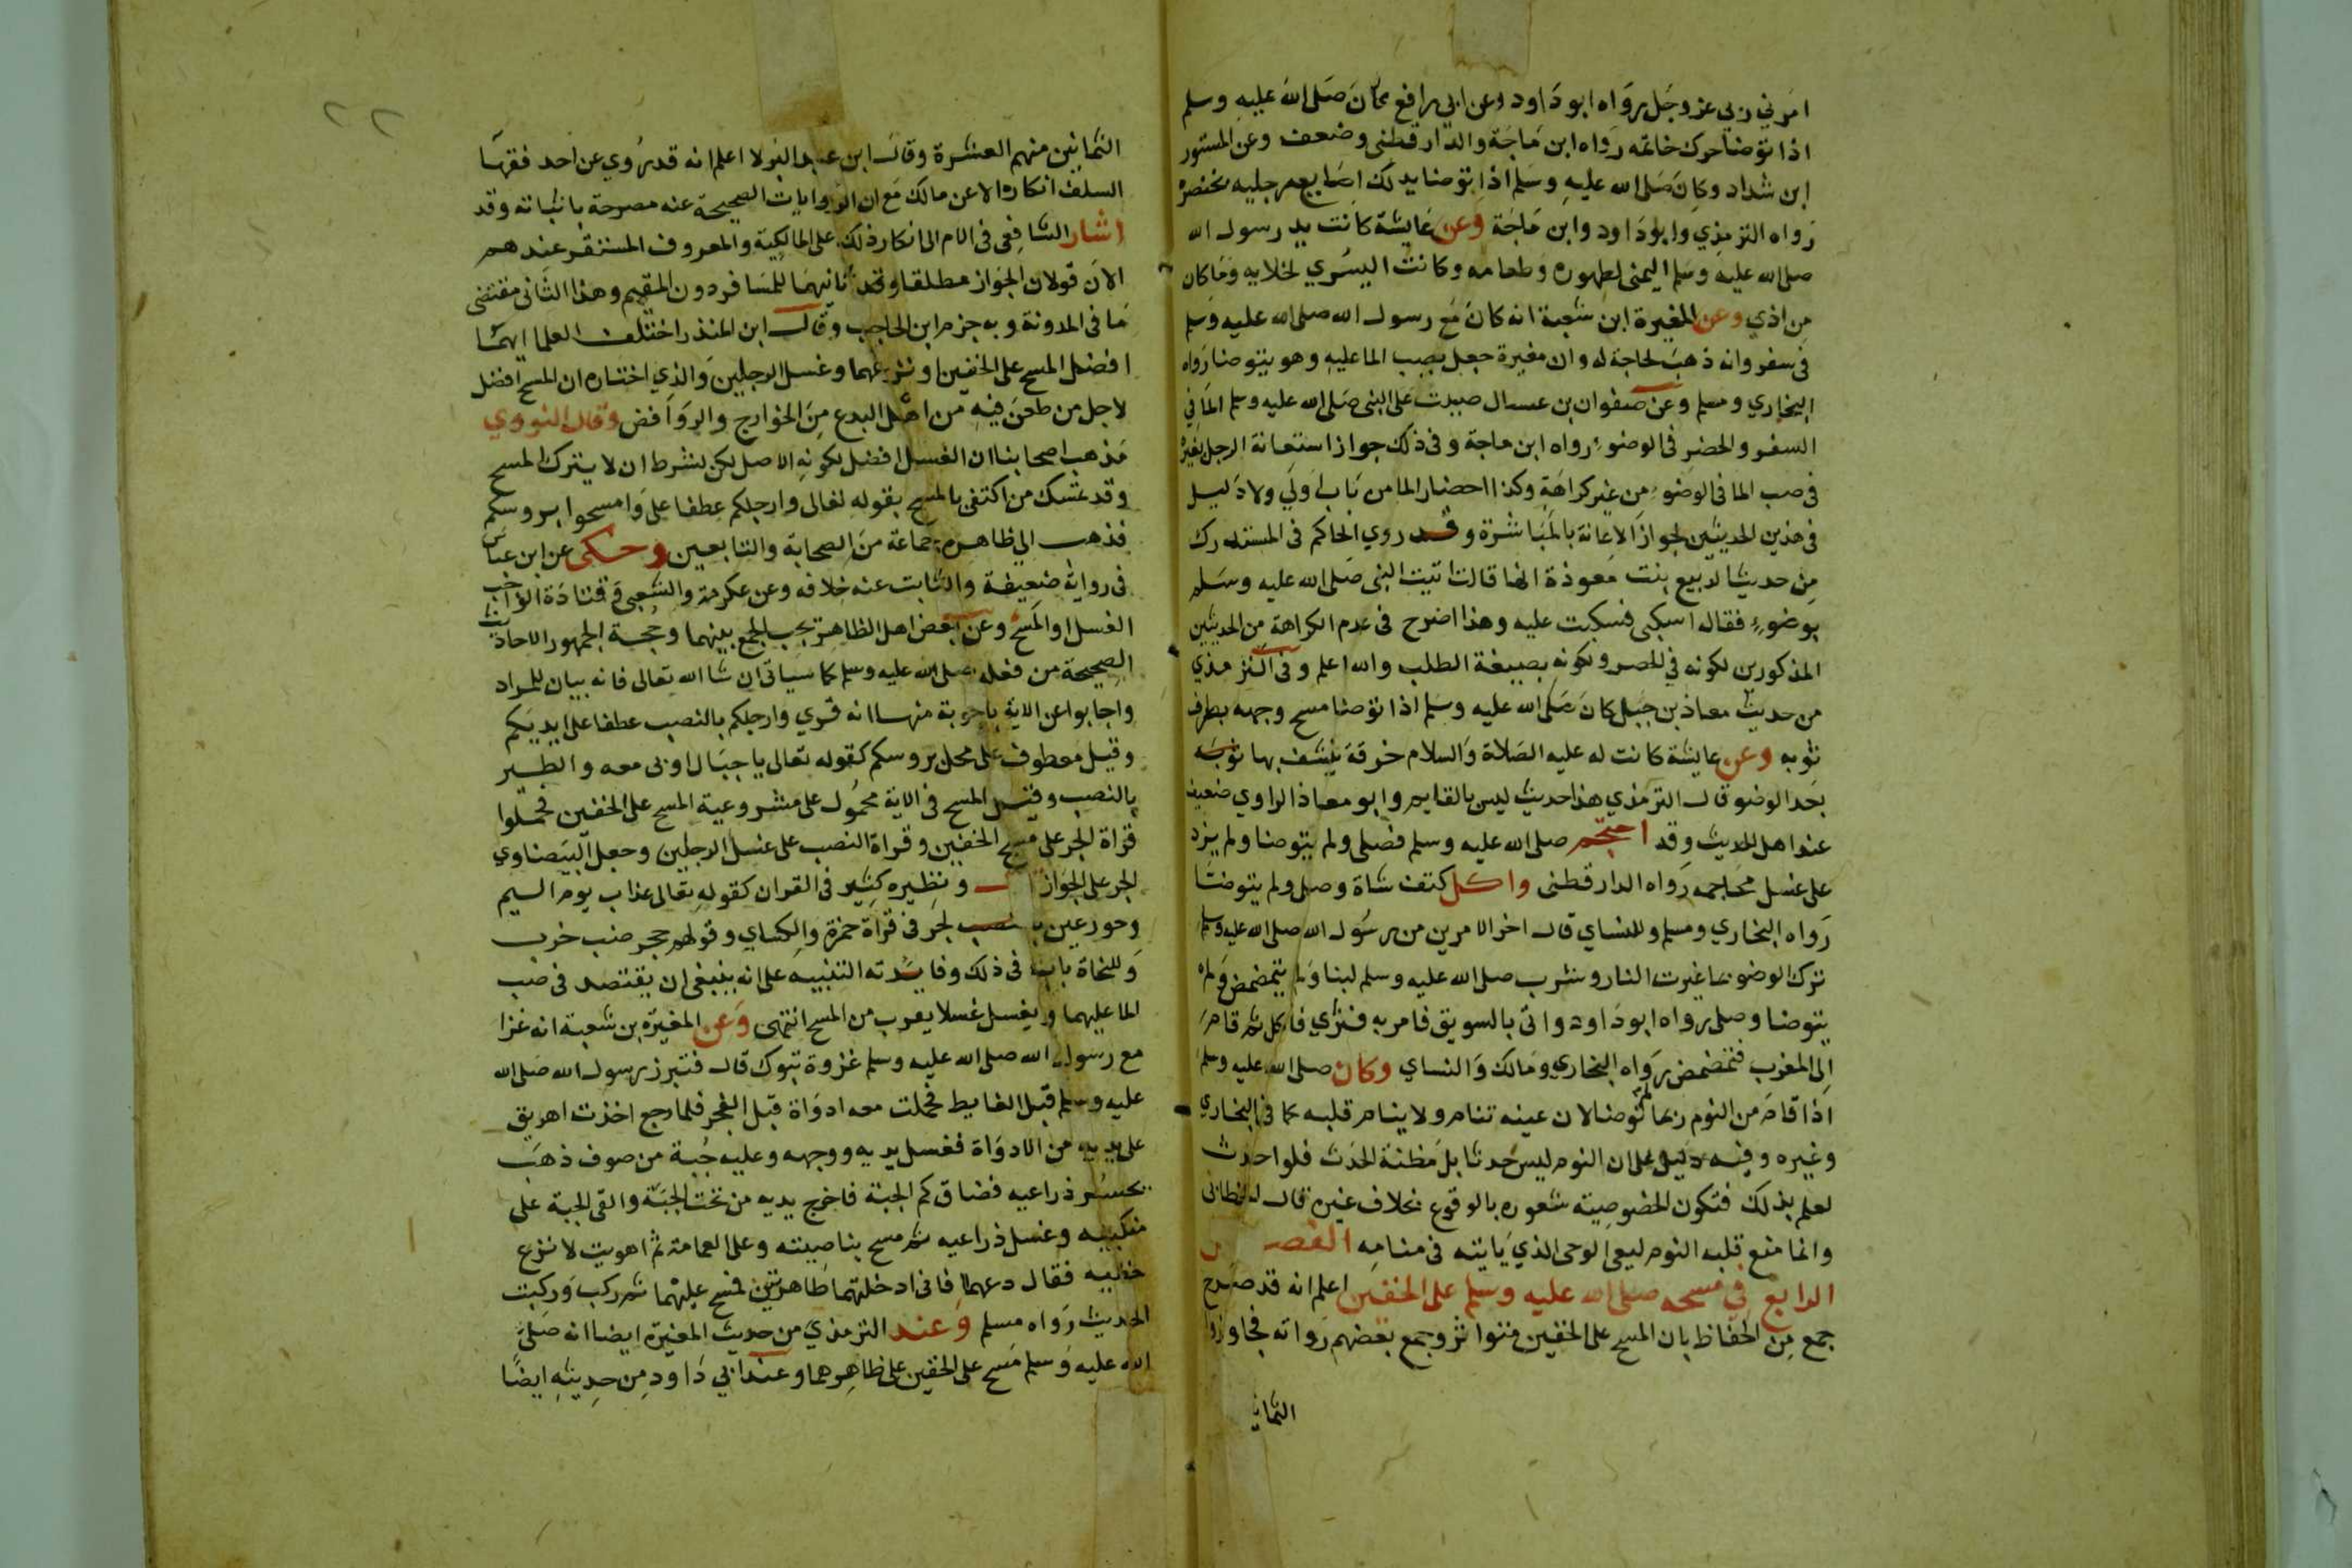 امرني ربي عز وجل رواه ابو داود وعن ابي رافع كان صلى الله عليه وسلم
اذا توضا حرك خاتمه رواه ابن ماجة والدارقطنى وضعف وعن المستورد
ابن شداد وكان صلى الله عليه وسلم اذا توضا يدلك اصابع رجليه بخنصره
رواه الترمذي وابو داود وابن ماجة وعن عايشة كانت يد رسول الله
صلى الله عليه وسلم اليمنى لطهوره وطعامه وكانت اليسري لخلايه وما كان
من اذي وعن المغيرة ابن شعبة انه كان مع رسول الله صلى الله عليه وسلم
فى سفر وانه ذهب لحاجة له وان مغيرة جعل يصب الما عليه وهو يتوضا رواه
البخاري ومسلم وعن صفوان بن عسال صببت على النبى صلى الله عليه وسلم الما في
السفر والحضر فى الوضوء رواه ابن ماجة وفى ذلك جواز استعانة الرجل بغيره
فى صب الما فى الوضوء من غير كراهة وكذا احضار الما من باب اولي ولا دليل
فى هذين الحديثين لجواز الاعانة بالمباشرة وقد روي الحاكم فى المستدرك
من حديث الربيع بنت معوذة انها قالت اتيت النبى صلى الله عليه وسلم
بوضوء فقال اسكبى فسكبت عليه وهذا اصرح فى عدم الكراهة من الحديثين
المذكورين لكونه في الحضر ولكونه بصيغة الطلب والله اعلم وفى الترمذي
من حديث معاذ بن جبل كان صلى الله عليه وسلم اذا توضا مسح وجهه بطرف
ثوبه وعن عايشة كانت له عليه الصلاة والسلام خرقة يتنشف بها
بعد الوضو قال الترمذي هذا حديث ليس بالقايم وابو معاذ الراوي ضعيف
عند اهل الحديث وقد احتجم صلى الله عليه وسلم فصلى ولم يتوضا ولم يزد
على غسل محاجمه رواه الدارقطنى واكل كتف شاة وصلى ولم يتوضا
رواه البخاري ومسلم وللنساي قال اخر الامرين من رسول الله صلى الله عليه وسلم
ترك الوضو مما غيرت النار وشرب صلى الله عليه وسلم لبنا ولم يتمضمض ولم
يتوضا وصلى رواه ابو داود واتى بالسويق فامر به فثري فاكل ثم قام
الى المغرب فتمضمض رواه البخاري ومالك والنساي وكان صلى الله عليه وسلم
اذا قام من النوم ربما توضا لان عينه تنام ولا ينام قلبه كما فى البخاري
وغيره وفيه دليل على ان النوم ليس حدثا بل مظنة الحدث فلو احدث
لعلم بذلك فتكون الخصوصيته شعوره بالوقوع بخلاف غيره قال الخطابى
وانما منع قلبه النوم ليعى الوحى الذي ياتيه فى منامه الفصل
الرابع في مسحه صلى الله عليه وسلم على الخفين اعلم انه قد صرح
جمع من الحفاظ بان المسح على الخفين متواتر وجمع بعضهم رواته فجاوزوا
الثمانين منهم العشرة وقال ابن عبد البر لا اعلم انه قد روي عن احد فقها
السلف انكاره الا عن مالك مع ان الروايات الصحيحة عنه مصرحة باثباته وقد
اشار الشافعى فى الام الى انكار ذلك على المالكية والمعروف المستقر عندهم
الان قولان الجواز مطلقا ثانيهما للمسافر دون المقيم وهذا الثانى مقتضى
ما فى المدونة وبه جزم ابن الحاجب وقال ابن المنذر اختلف العلما ايهما
افضل المسح على الخفين او نزعهما وغسل الرجلين والذي اختاره ان المسح افضل
لاجل من طعن فيه من اهل البدع من الخوارج والروافض وقال النووي
مذهب اصحابنا ان الغسل افضل لكونه الاصل لكن بشرط ان لا يترك المسح
وقد تمسك من اكتفى بالمسح بقوله تعالى وارجلكم عطفا على وامسحوا بروسكم
فذهب الى ظاهره جماعة من الصحابة والتابعين وحكى عن ابن عباس
فى رواية ضعيفة والثابت عنه خلافه وعن عكرمة والشعبى وقتادة الواجب
الغسل او المسح وعن بعض اهل الظاهر يجب الجمع بينهما وحجة الجمهور الاحاديث
الصحيحة من فعله صلى الله عليه وسلم كما سياتى ان شا الله تعالى فانه بيان للمراد
واجابوا عن الاية باجوبة منها انه قري وارجلكم بالنصب عطفا على ايديكم
وقيل معطوف على محل بروسكم كقوله تعالى يا جبال اوبى معه والطير
بالنصب وقيل المسح فى الاية محمول على مشروعية المسح على الخفين فحملوا
قراة الجر على مسح الخفين وقراة النصب على غسل الرجلين وجعل البيضاوي
الجر على الجواز ونظيره كثير فى القران كقوله تعالى عذاب يوم اليم
وحور عين الجر فى قراة حمزة والكساي وقولهم جحر ضب خرب
وللنحاة باب فى ذلك وفايدته التنبيه على انه ينبغى ان يقتصد فى صب
الما عليهما ويغسل غسلا يقرب من المسح انتهى وعن المغيرة بن شعبة انه غزا
مع رسول الله صلى الله عليه وسلم غزوة تبوك قال فتبرز رسول الله صلى الله
عليه وسلم قبل الغايط فحملت معه ادواة قبل الفجر فلما رجع اخذت اهريق
على يديه من الادواة فغسل يديه ووجهه وعليه جبة من صوف ذهب
يحسر ذراعيه فضاق كم الجبة فاخرج يديه من تحت الجبة والقى الجبة على
منكبيه وغسل ذراعيه ثم مسح بناصيته وعلى العمامة ثم اهويت لانزع
خفيه فقال دعهما فانى ادخلتهما طاهرتين فمسح عليهما ثم ركب وركبت
الحديث رواه مسلم وعند الترمذي من حديث المغيرة ايضا انه صلى
الله عليه وسلم مسح على الخفين على ظاهرهما وعند ابي داود من حديثه ايضا